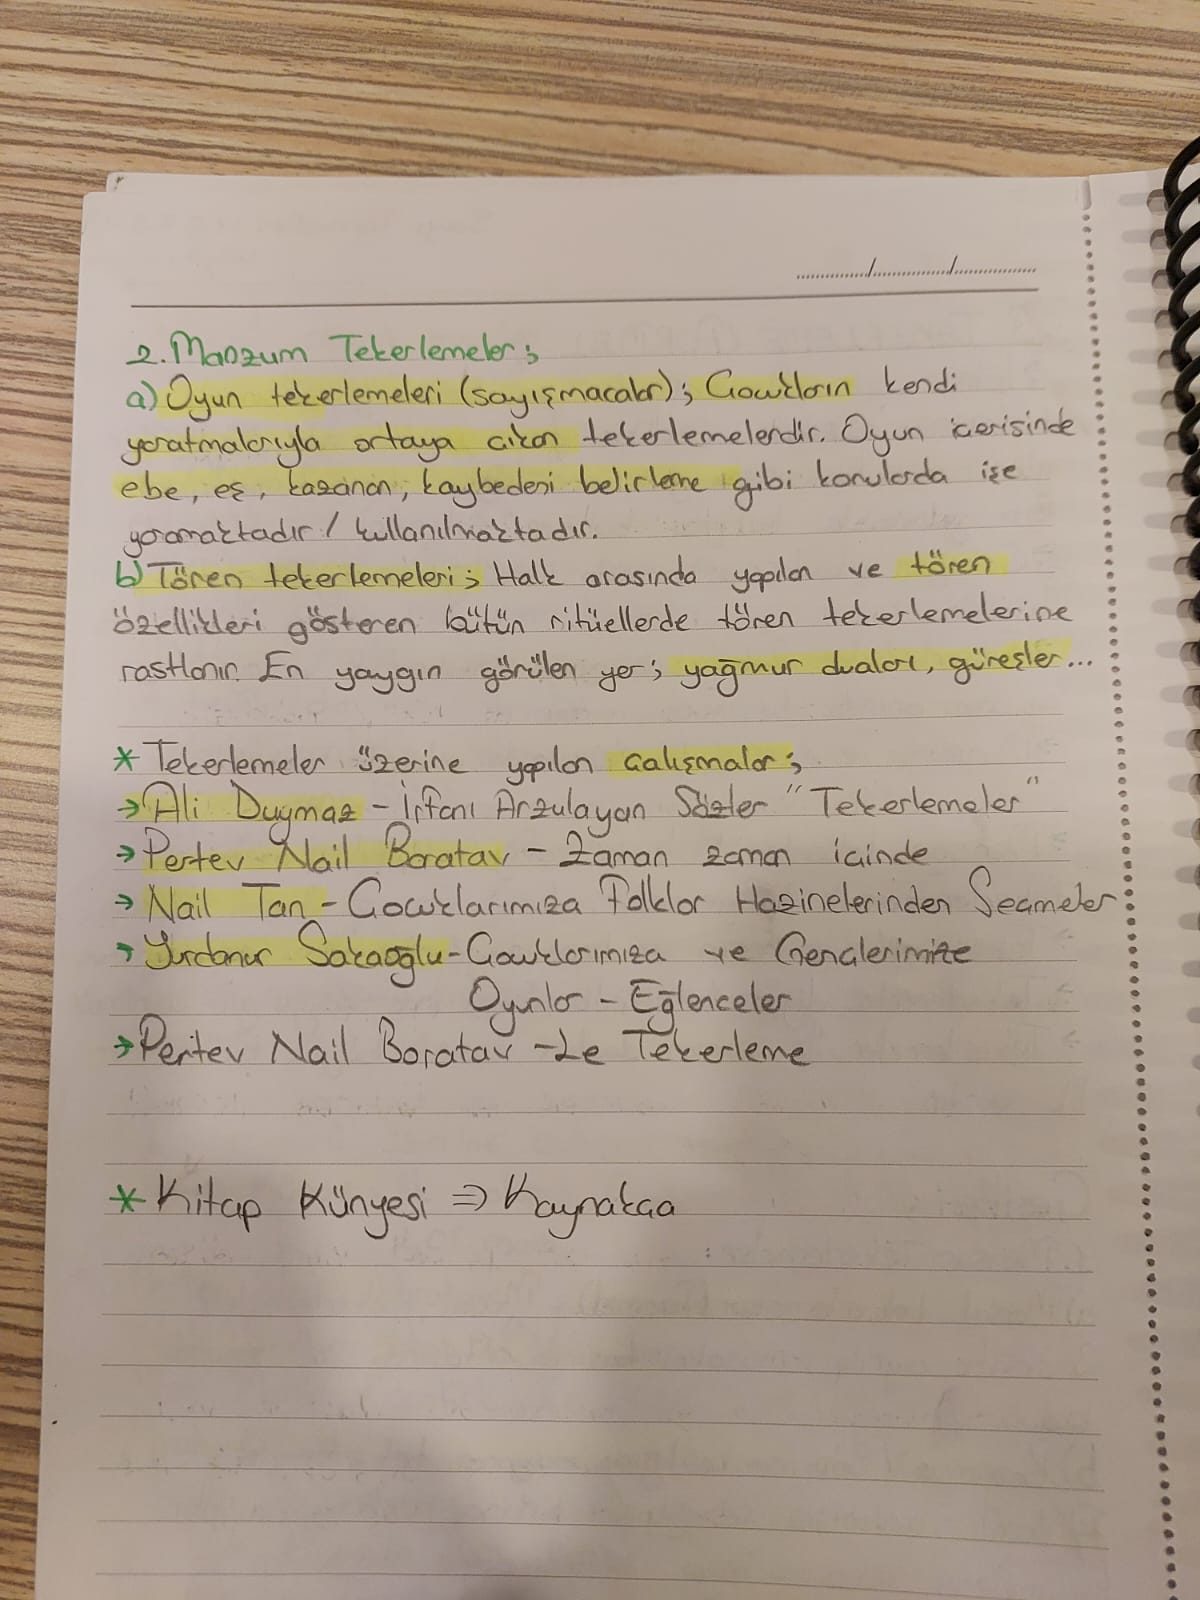 2. Manzum Tekerlemeler;
a) Oyun tekerlemeleri (sayışmacalar); Çocukların kendi
yaratmalarıyla ortaya çıkan tekerlemelerdir. Oyun içerisinde
ebe, eş, kazanan, kaybedeni belirleme gibi konularda işe
yaramaktadır / kullanılmaktadır.
b) Tören tekerlemeleri; Halk arasında yapılan ve tören
özellikleri gösteren bütün ritüellerde tören tekerlemelerine
rastlanır. En yaygın görülen yer; yağmur duaları, güreşler...
* Tekerlemeler üzerine yapılan çalışmalar;
→ Ali Duymaz - İrfanı Arzulayan Sözler "Tekerlemeler"
→ Pertev Nail Boratav - Zaman zaman içinde
→ Nail Tan - Çocuklarımıza Folklor Hazinelerinden Seçmeler
→ Yurdanur Sakaoğlu - Çocuklarımıza ve Gençlerimize
Oyunlar - Eğlenceler
→ Pertev Nail Boratav - Le Tekerleme
* Kitap Künyesi ⇒ Kaynakça